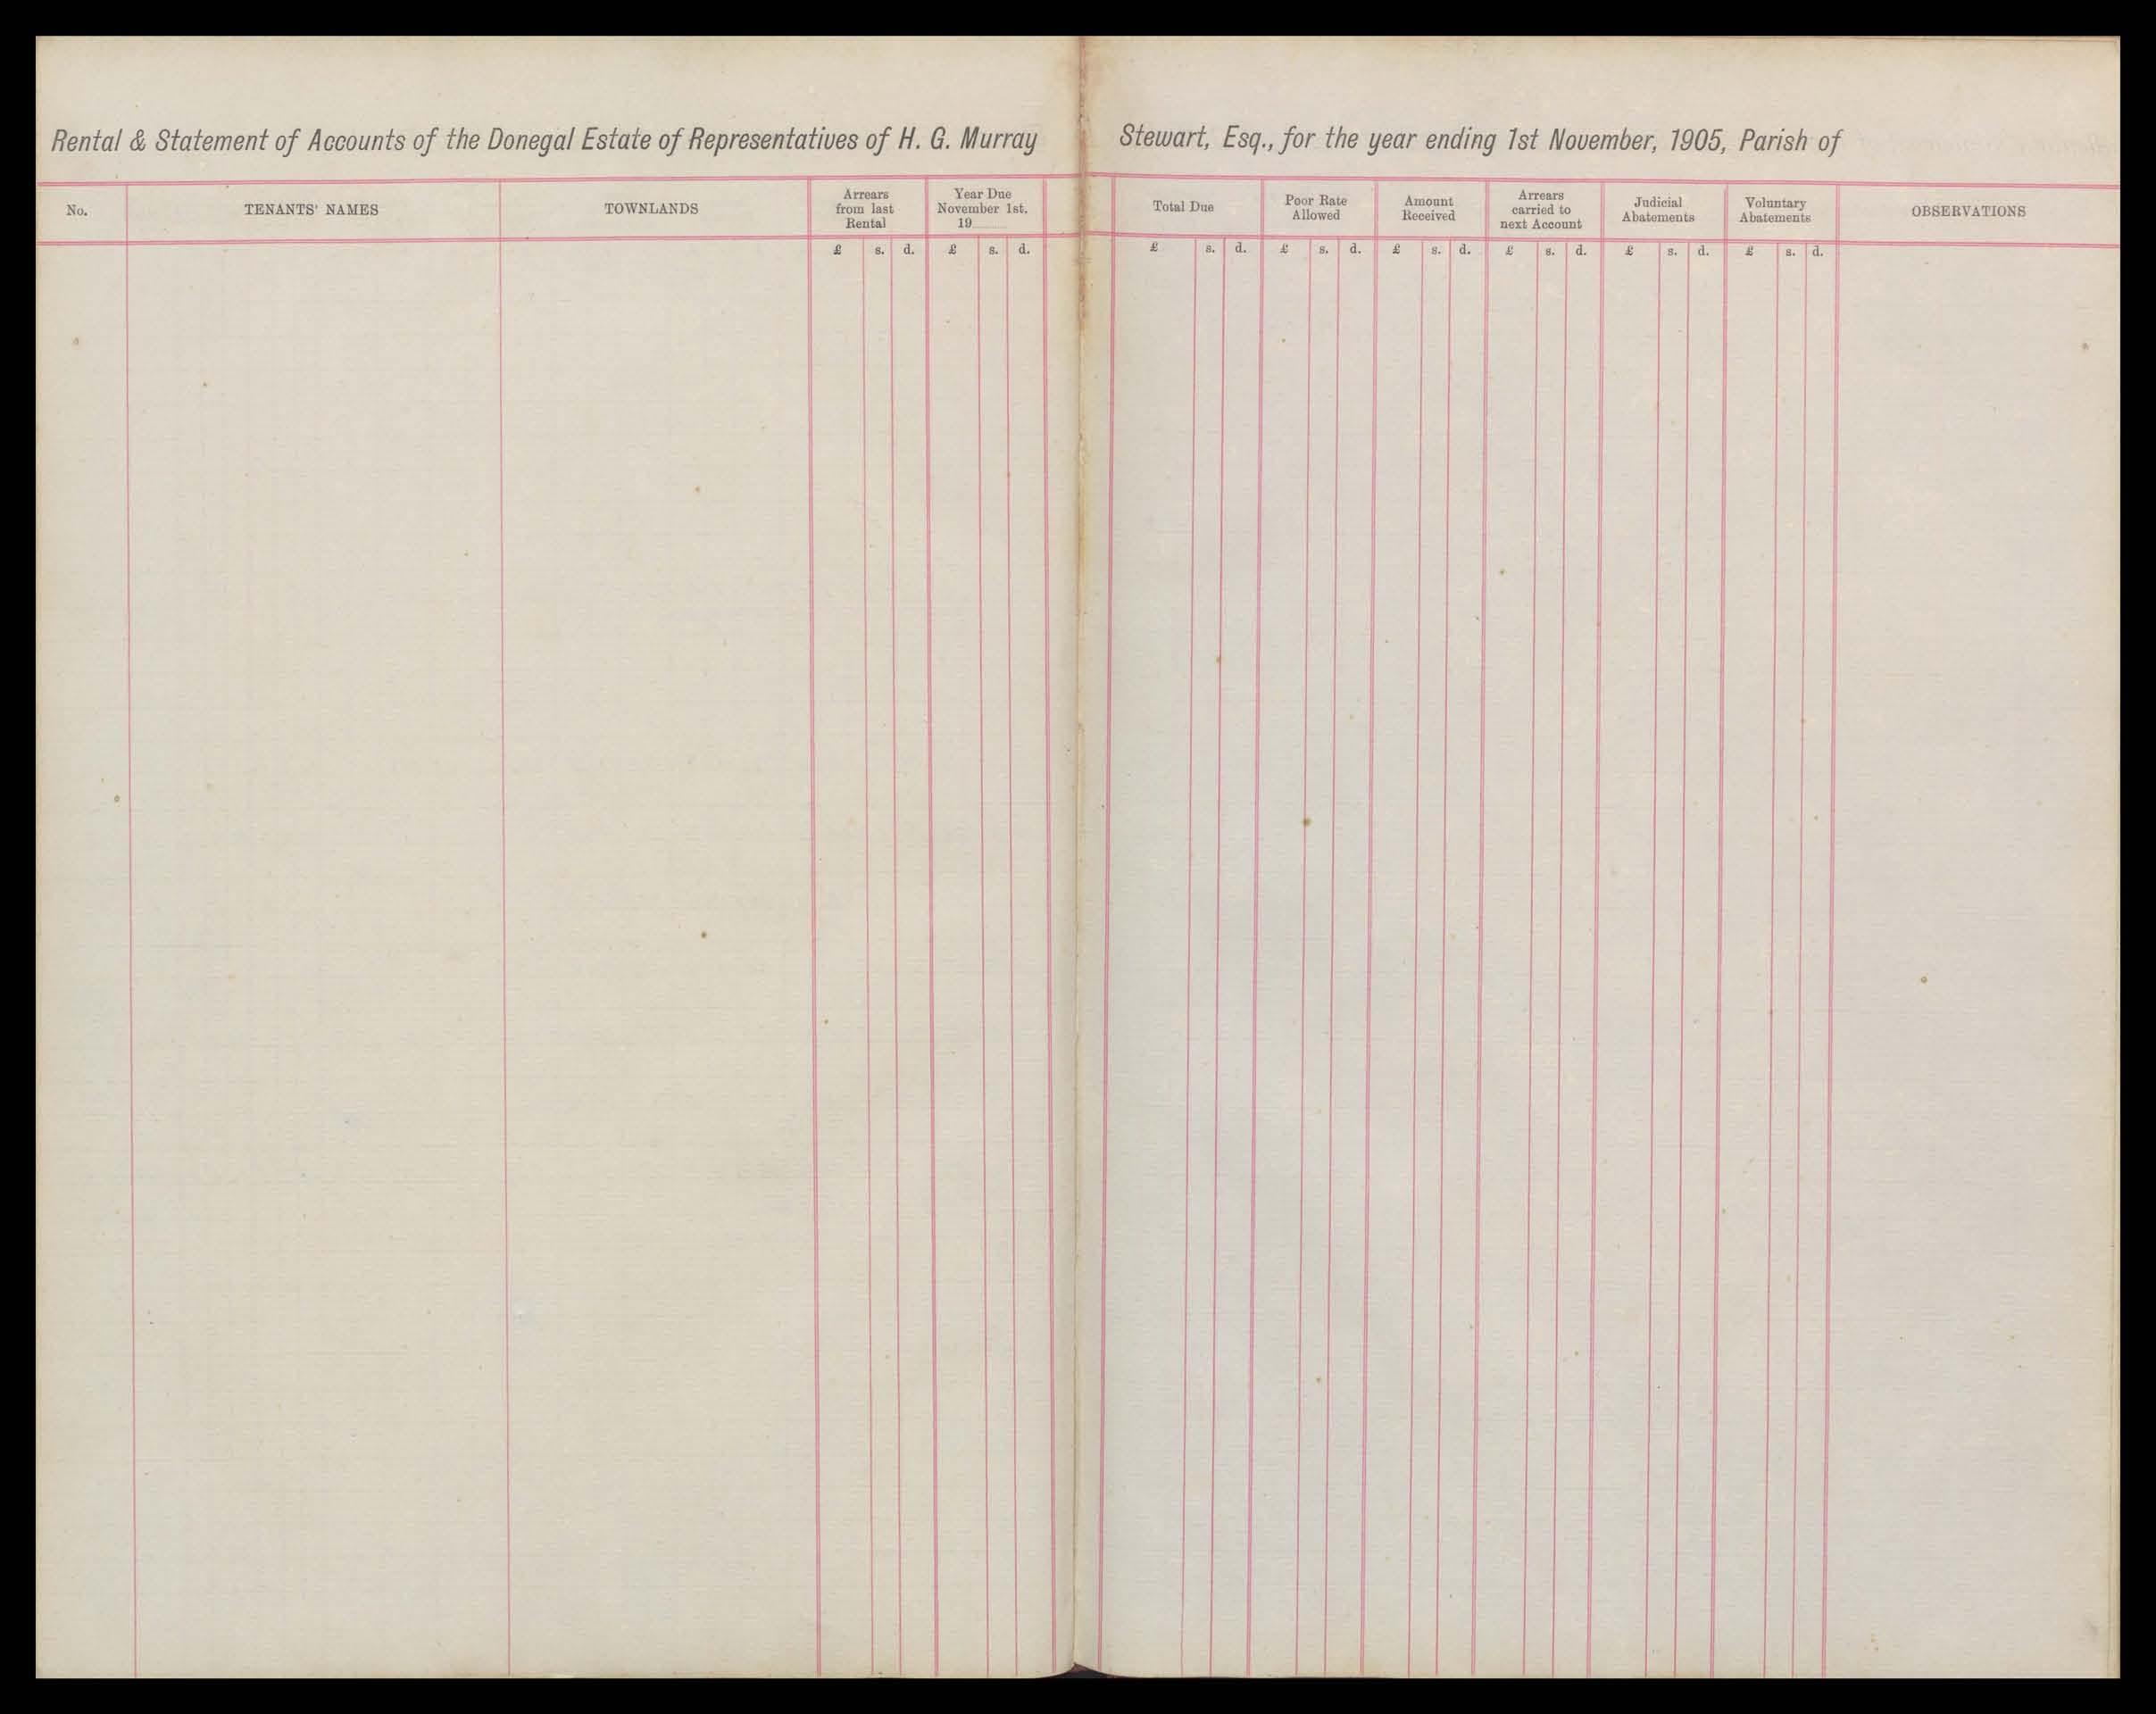 Rental & Statement of Accounts of the Donegal Estate of Representatives of H. G. Murray Stewart, Esq., for the year ending 1st November, 1905, Parish of
No.
TENANTS' NAMES
TOWNLANDS
Arrears
from last
Rental
Year Due
November 1st.
19
Total Due
Poor Rate
Allowed
Amount
Received
Arrears
carried to
next Account
Judicial
Abatements
Voluntary
Abatements
OBSERVATIONS
£ s. d. £ s. d. £ s. d. £ s. d. £ s. d. £ s. d. £ s. d. £ s. d.